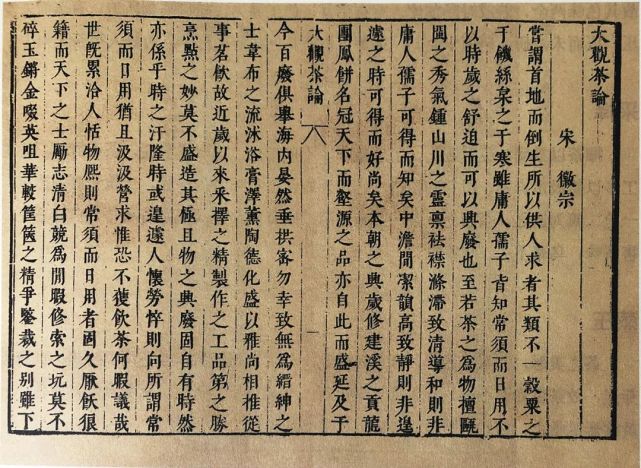 大觀茶論
宋 徽宗
嘗謂首地而倒生所以供人求者其類不一穀粟之
于饑絲枲之于寒雖庸人孺子皆知常須而日用不
以時歲之舒迫而可以興廢也至若茶之為物擅甌
閩之秀氣鍾山川之靈禀袪襟滌滯致清導和則非
庸人孺子可得而知矣中澹閒潔韻高致靜則非遑
遽之時可得而好尚矣本朝之興歲修建溪之貢龍
團鳳餅名冠天下而壑源之品亦自此而盛延及于
大觀茶論 一
今百廢俱舉海内晏然垂拱密勿幸致無為縉紳之
士韋布之流沐浴膏澤薰陶德化盛以雅尚相推從
事茗飲故近歲以來采擇之精製作之工品第之勝
烹點之妙莫不盛造其極且物之興廢固自有時然
亦係乎時之汙隆時或遑遽人懷勞悴則向所謂常
須而日用猶且汲汲營求惟恐不獲飲茶何暇議哉
世既累洽人恬物熙則常須而日用者固久厭飫狼
籍而天下之士勵志清白競為閒暇修索之玩莫不
碎玉鏘金啜英咀華較筐篋之精爭鑒裁之别雖下